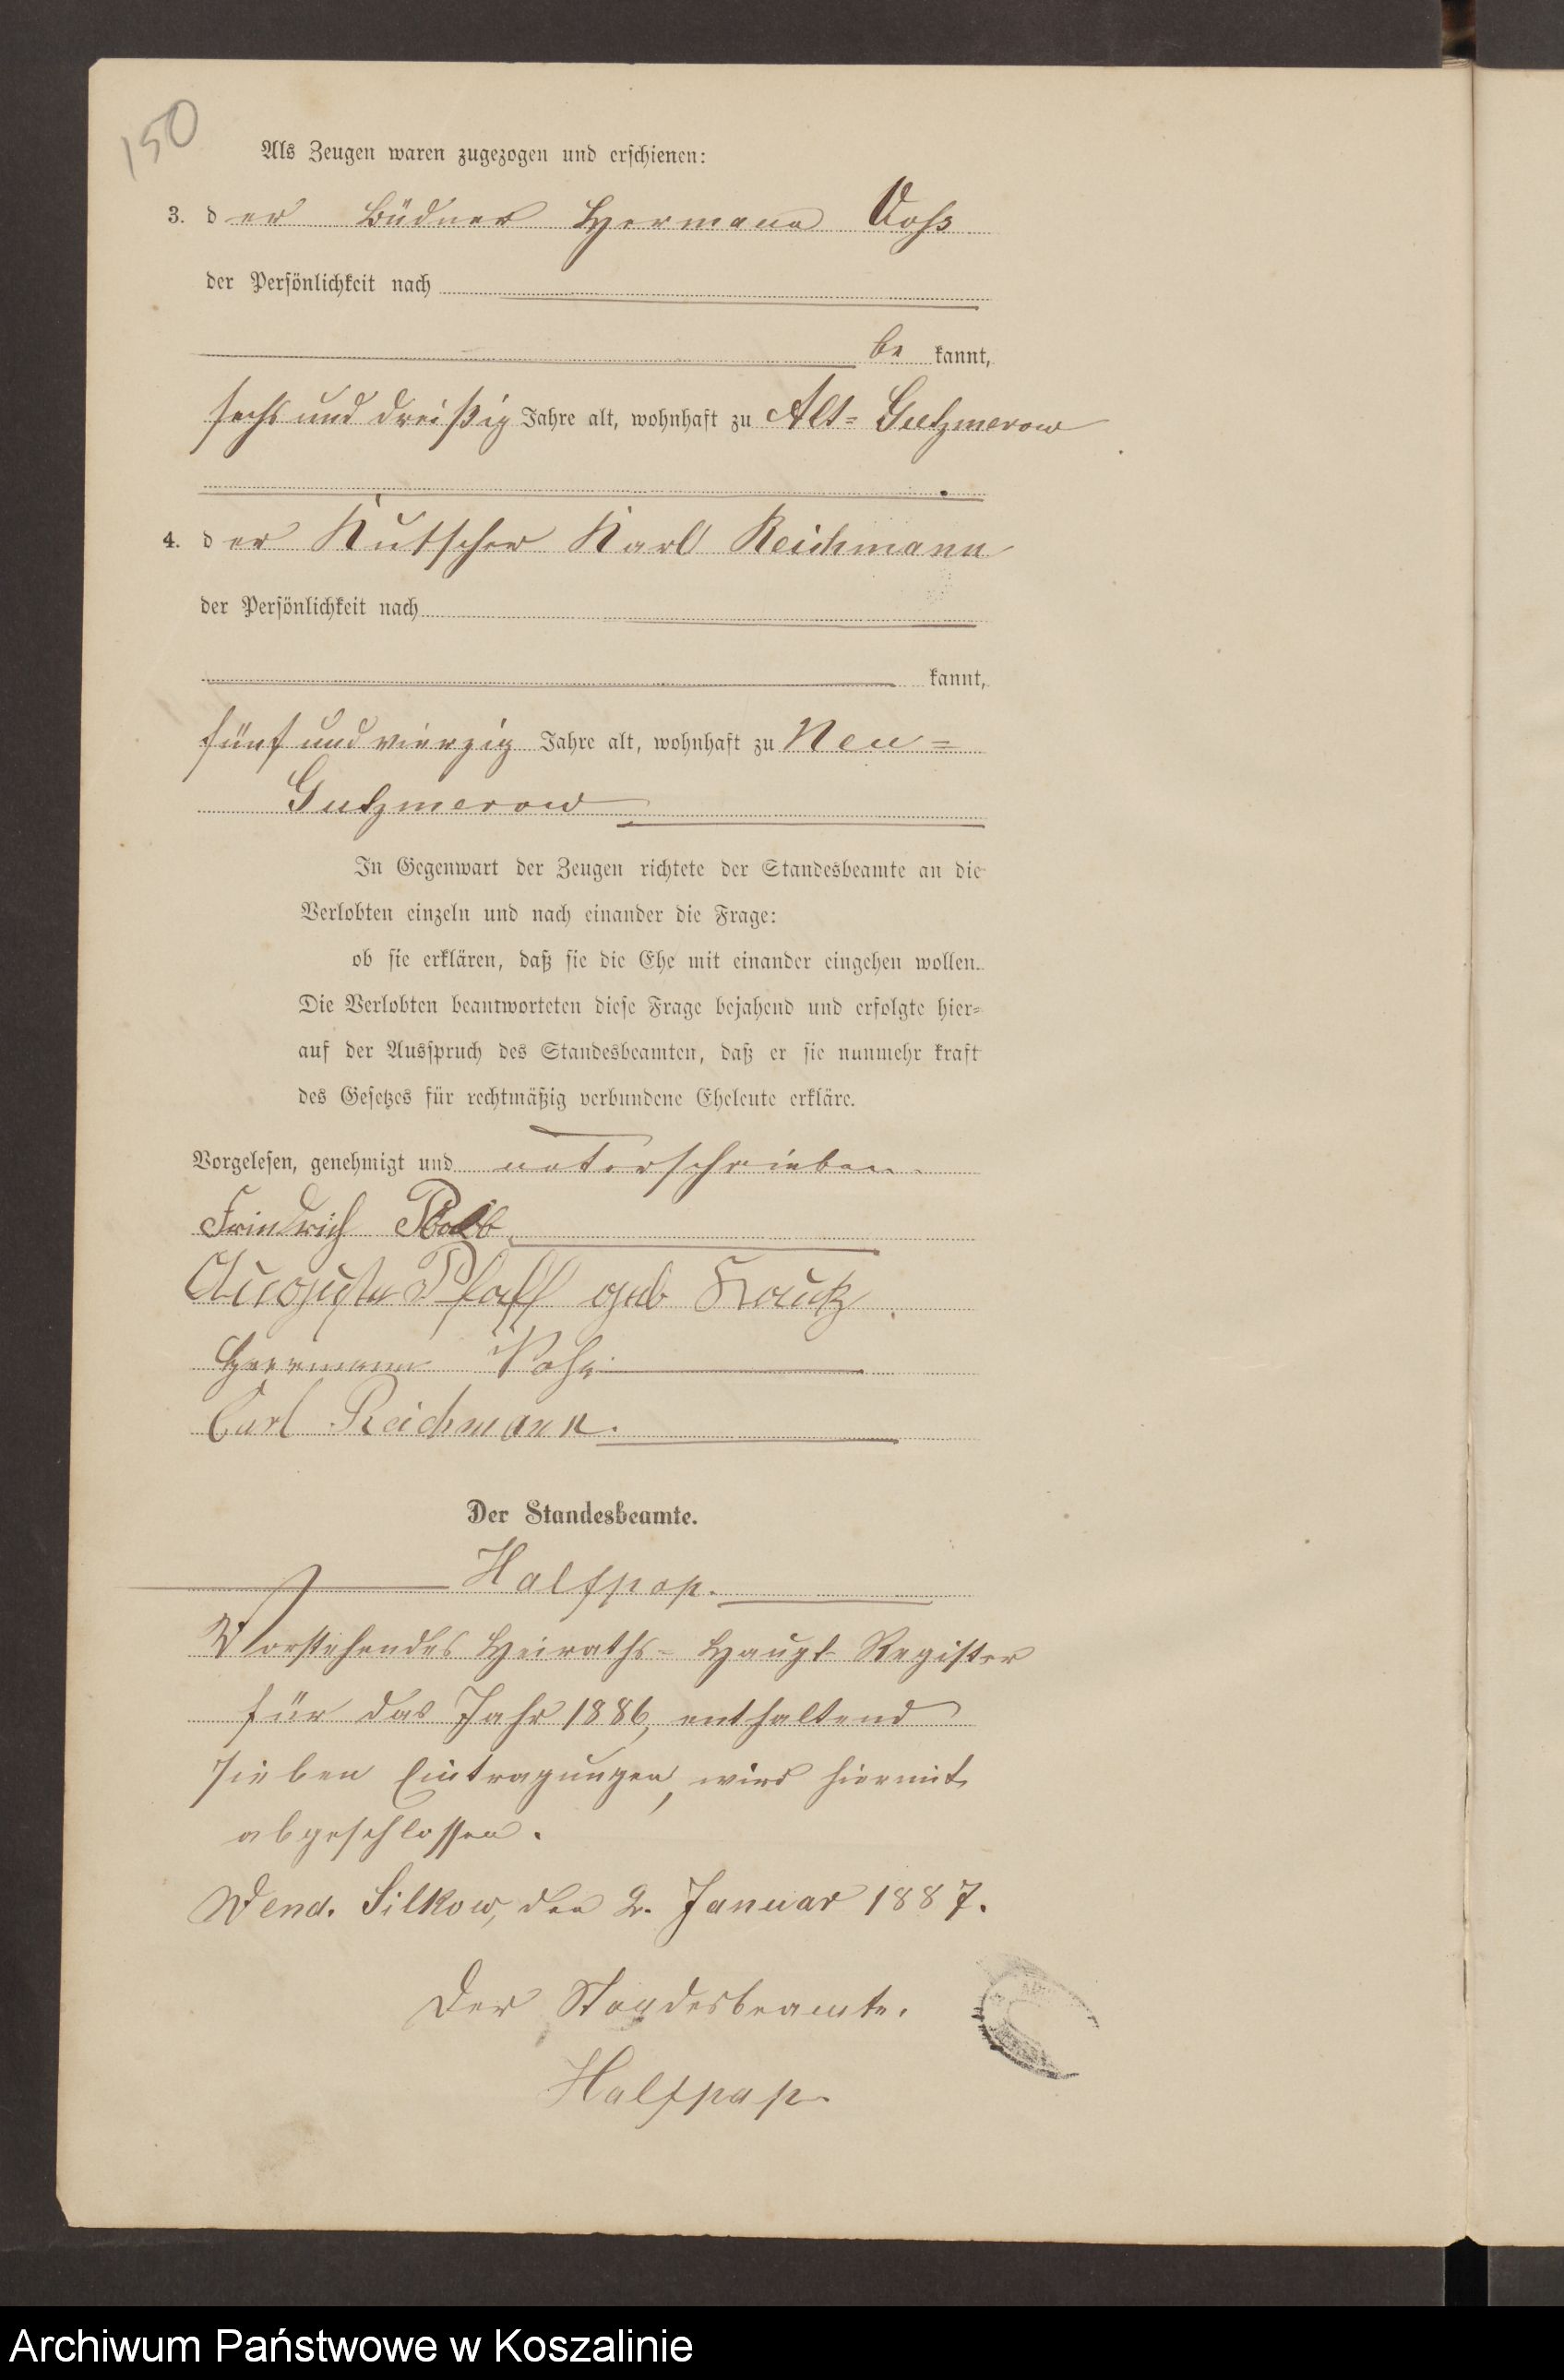 150
Als Zeugen waren zugezogen und erschienen:
3. der Büdner Hermann Voß
der Persönlichkeit nach
be kannt,
sechs und dreißig Jahre alt, wohnhaft zu Alt= Gutzmerow
4. der Kutscher Karl Reichmann
der Persönlichkeit nach
kannt,
fünf und vierzig Jahre alt, wohnhaft zu Neu=
Gutzmerow
In Gegenwart der Zeugen richtete der Standesbeamte an die
Verlobten einzeln und nach einander die Frage:
ob sie erklären, daß sie die Ehe mit einander eingehen wollen.
Die Verlobten beantworteten diese Frage bejahend und erfolgte hier=
auf der Ausspruch des Standesbeamten, daß er sie nunmehr kraft
des Gesetzes für rechtmäßig verbundene Eheleute erkläre.
Vorgelesen, genehmigt und unterschrieben.
Friedrich
Auguste Pfaff geb
Herrmann Voß
Carl Reichmann.
Der Standesbeamte.
Halfpap.
Vorstehendes Heiraths= Haupt Register
für das Jahr 1886, enthaltend
sieben Eintragungen, wird hiermit
abgeschlossen.
Wend. Silkow, den 2. Januar 1887.
Der Standesbeamte.
Halfpap.
Archiwum Państwowe w Koszalinie